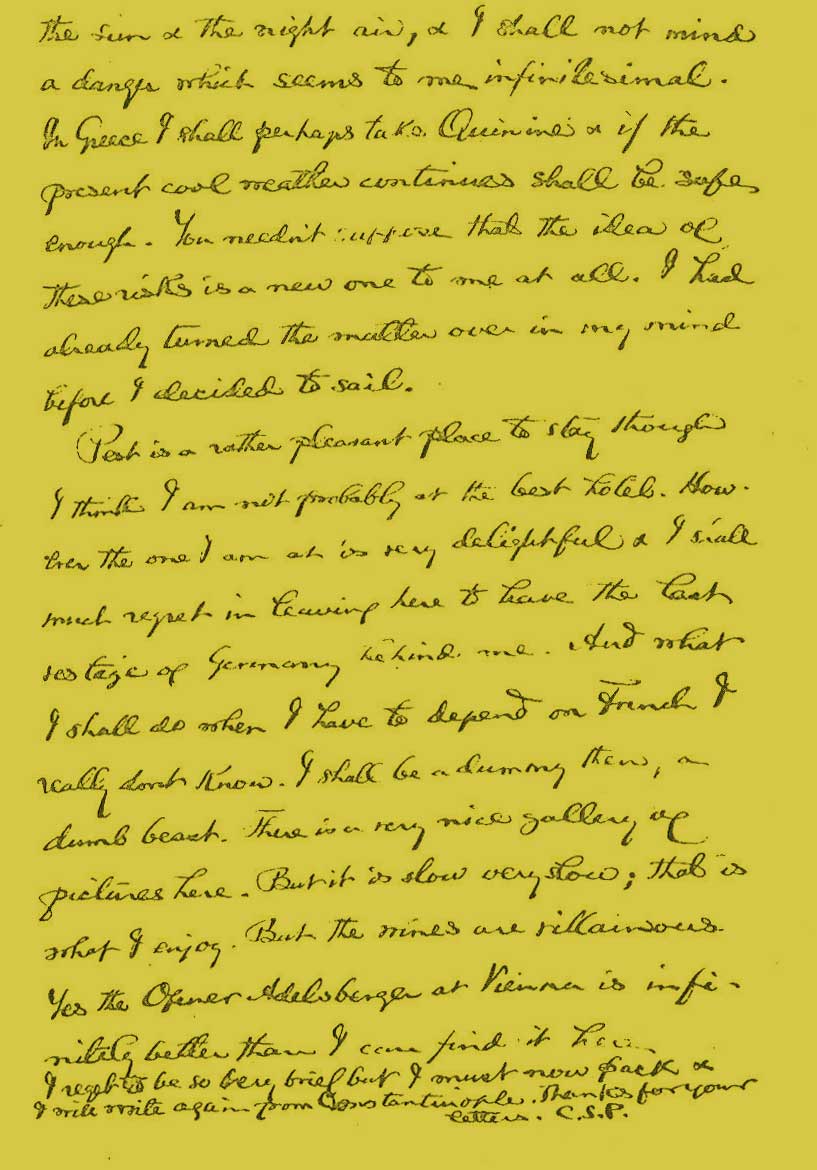 the sun & the night air, & I shall not mind
a danger which seems to me infinitesimal.
In Greece I shall perhaps take Quinine & if the
present cool weather continues shall be safe
enough. You needn't suppose that the idea of
these risks is a new one to me at all. I had
already turned the matter over in my mind
before I decided to sail.
Pest is a rather pleasant place to stay though
I think I am not probably at the best hotel. How-
ever the one I am at is very delightful & I shall
much regret in leaving here to leave the last
vestige of Germany behind me. And what
I shall do when I have to depend on French I
really don't know. I shall be a dummy then, a
dumb beast. There is a very nice gallery of
pictures here. But it is slow very slow; that is
what I enjoy. But the wines are villainous.
Yes the Ofener Adelsberger at Vienna is infi-
nitely better than I can find it here
I regret to be so very brief but I must now pack &
I will write again from Constantinople. Thanks for your
letters. C.S.P.